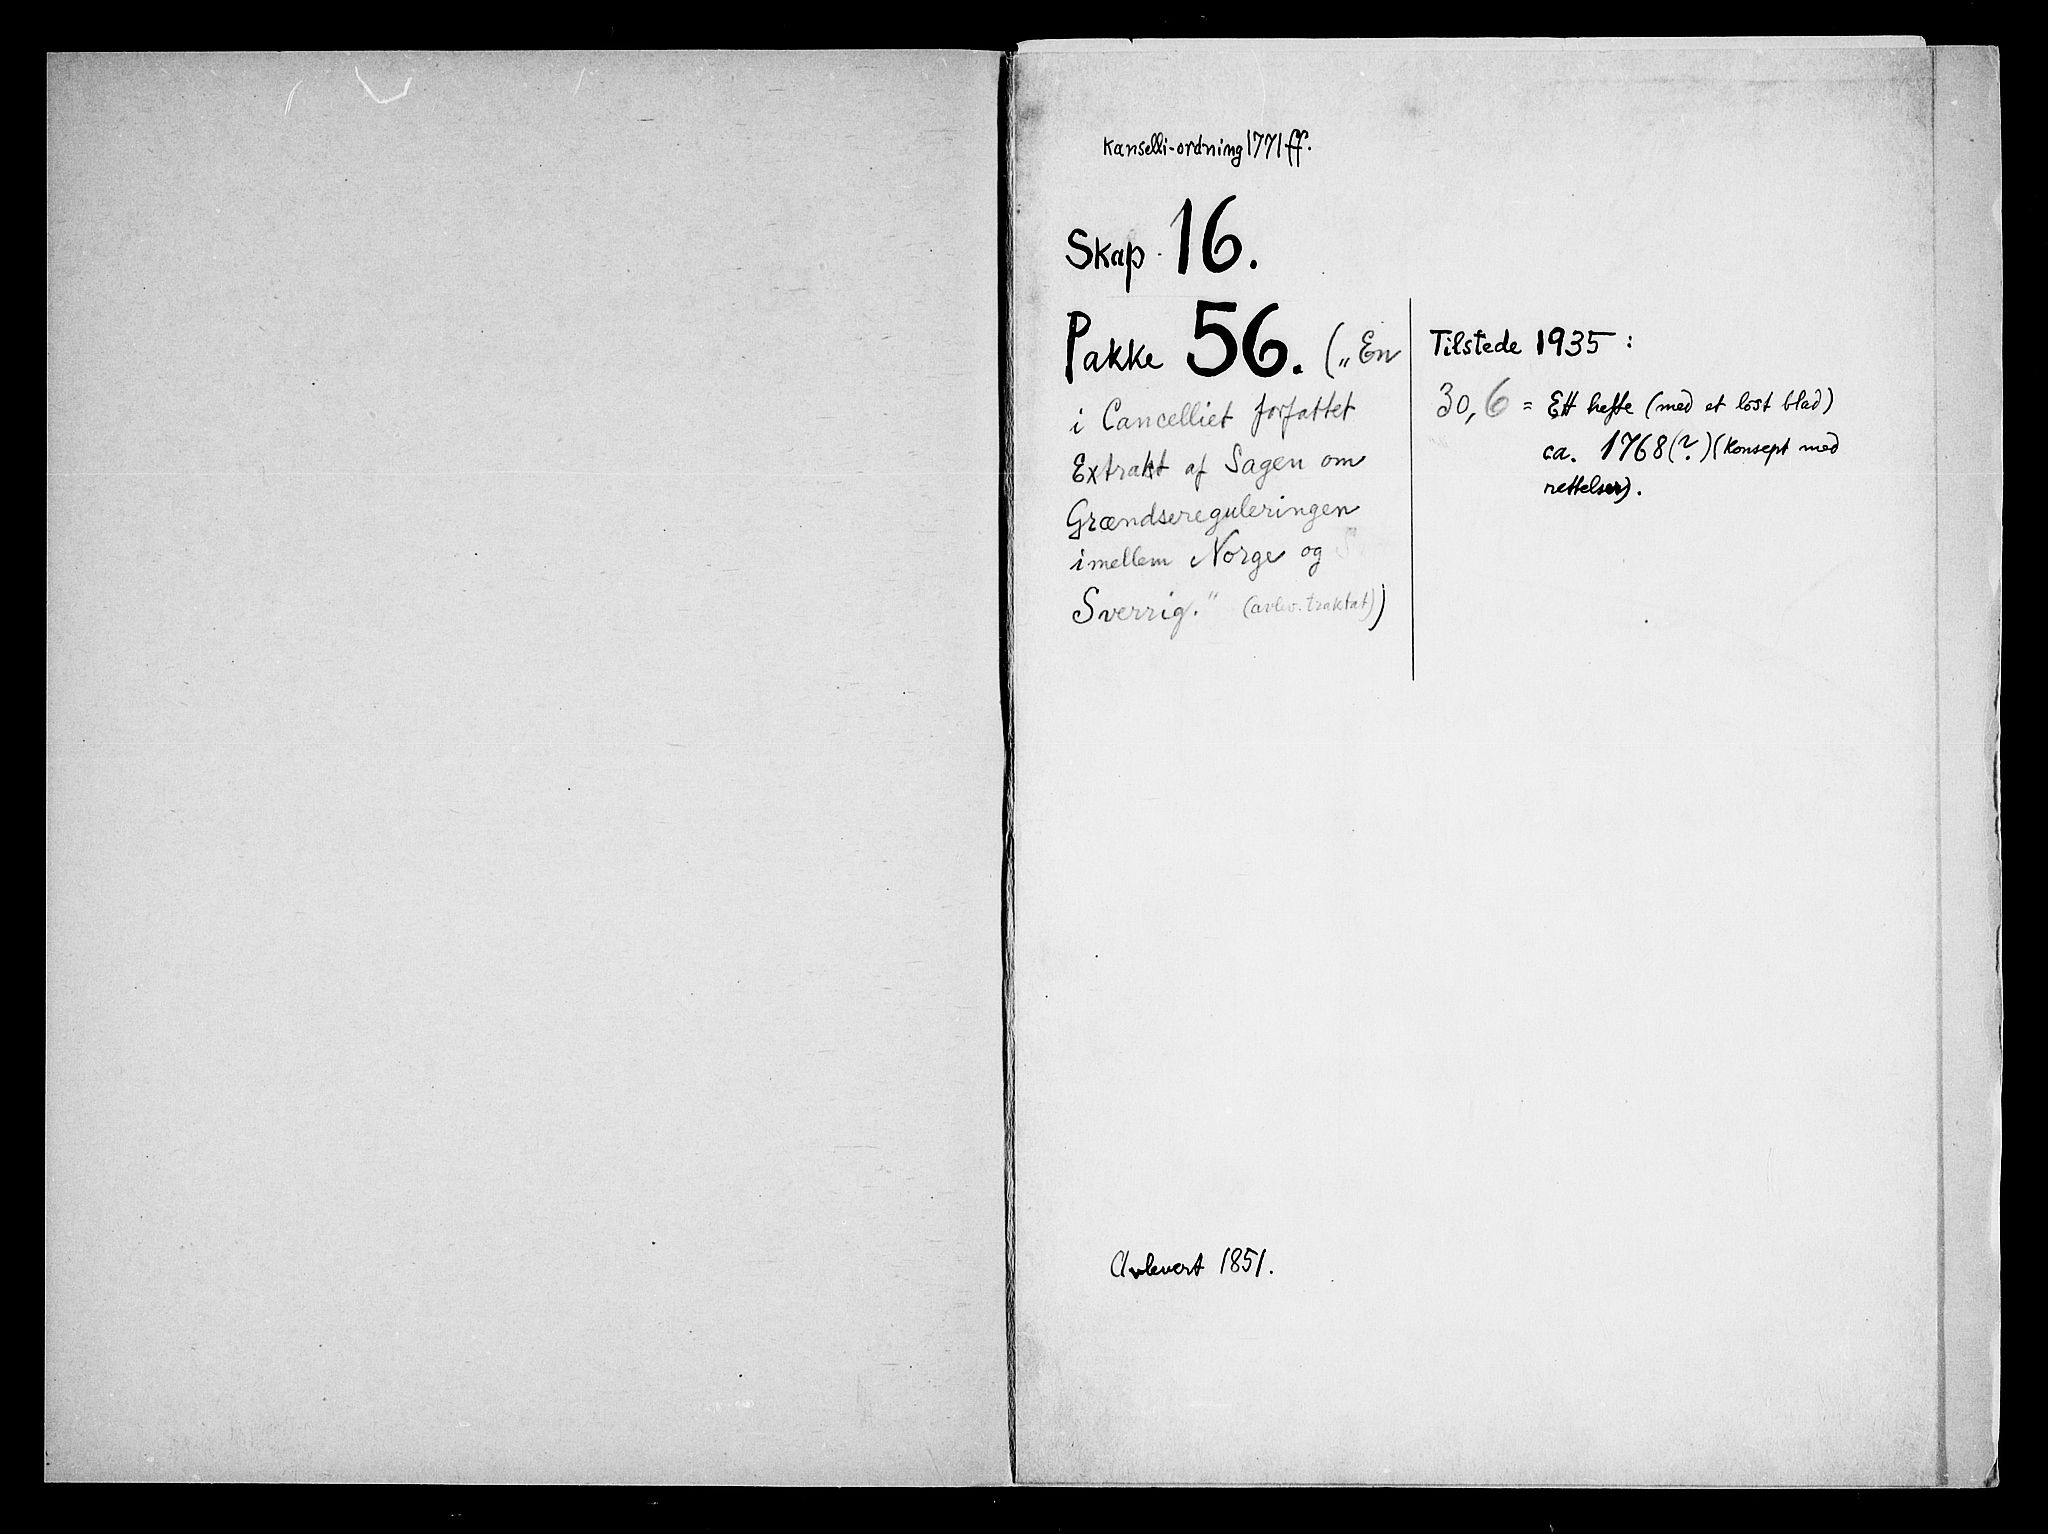 Kanselli-ordning 1771 ff.
Skap 16.
Pakke 56. („En
i Cancelliet forfattet
Extrakt af Sagen om
Grændsereguleringen
imellem Norge og
Sverrig.“ (avlev. traktat))
Tilstede 1935:
30,6 = Ett hefte (med et løst blad)
ca. 1768(?) (konsept med
rettelser).
Avlevert 1851.